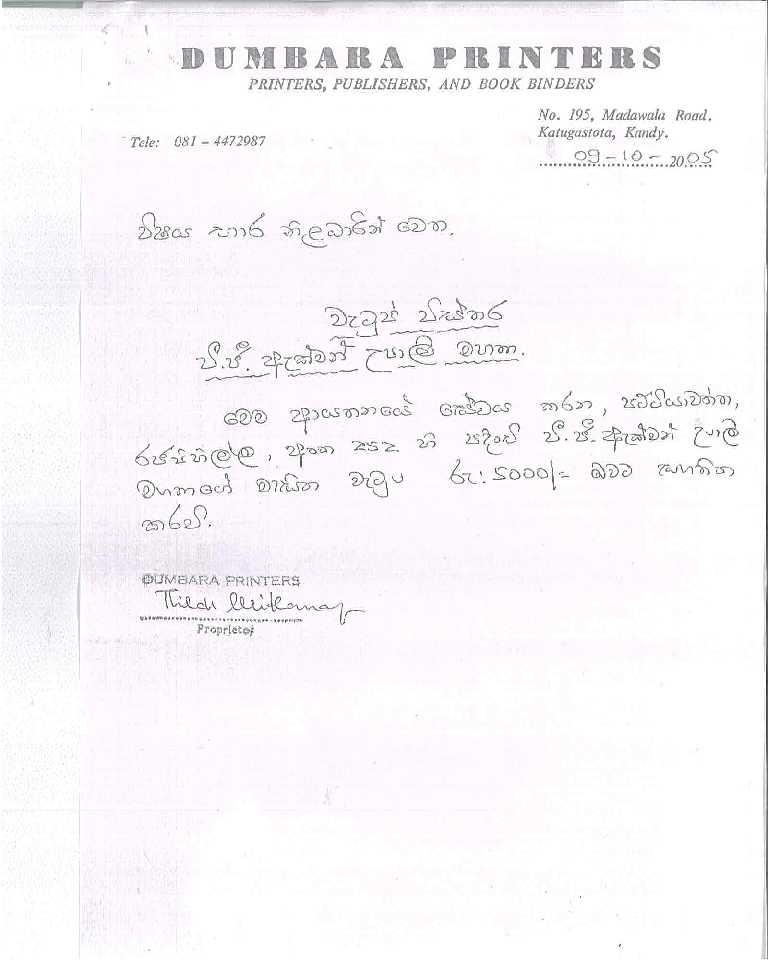 DUMBARA PRINTERS
PRINTERS, PUBLISHERS, AND BOOK BINDERS
No. 195, Madawala Road,
Katugastota, Kandy.
Tele: 081 - 4472987
09-10-2005
විෂය භාර නිළධාරින් වෙත.
වැටුප් විස්තර
පී.ජී. ඇක්මන් උපාලි මහතා.
මෙම ආයතනයේ සේවය කරන, පට්ටියාවත්ත,
රජපිහිල්ල, අංක 252 හි පදිංචි පී.ජී. ඇක්මන් උපාලි
මහතාගේ මාසික වැටුප රු: 5000/= බවට සහතික
කරමි.
DUMBARA PRINTERS
Proprietor